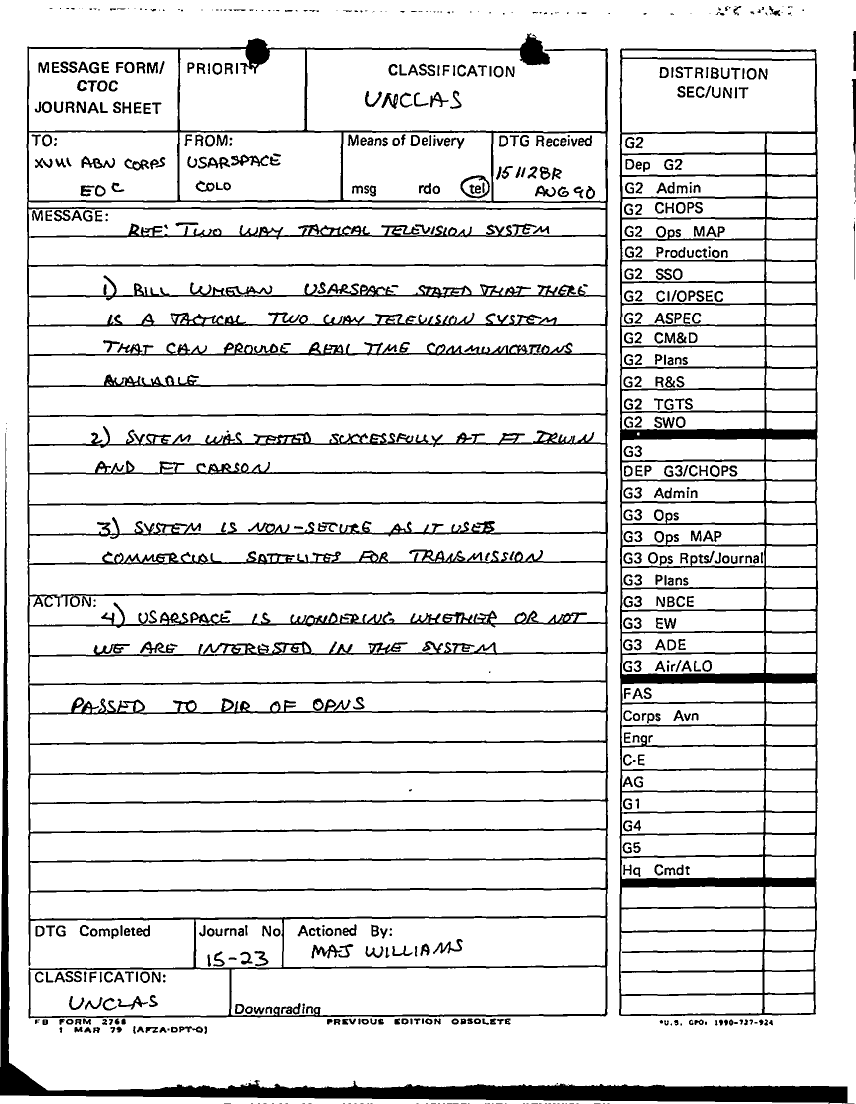 MESSAGE FORM/
CTOC
JOURNAL SHEET
PRIORITY
CLASSIFICATION
UNCLAS
TO:
XVIII ABN CORPS
EOC
FROM:
USARSPACE
COLO
Means of Delivery
msg rdo tel
DTG Received
151128R
AUG 90
MESSAGE:
REF: TWO WAY TACTICAL TELEVISION SYSTEM
1) BILL WHELAN USARSPACE STATED THAT THERE
IS A TACTICAL TWO WAY TELEVISION SYSTEM
THAT CAN PROVIDE REAL TIME COMMUNICATIONS
AVAILABLE
2) SYSTEM WAS TESTED SUCCESSFULLY AT FT IRWIN
AND FT CARSON
3) SYSTEM IS NON-SECURE AS IT USES
COMMERCIAL SATTELITES FOR TRANSMISSION
ACTION:
4) USARSPACE IS WONDERING WHETHER OR NOT
WE ARE INTERESTED IN THE SYSTEM
PASSED TO DIR OF OPNS
DTG Completed
Journal No.
15-23
Actioned By:
MAJ WILLIAMS
CLASSIFICATION:
UNCLAS
Downgrading
FB FORM 2768
1 MAR 79 (AFZA-DPT-O)
PREVIOUS EDITION OBSOLETE
DISTRIBUTION
SEC/UNIT
G2
Dep G2
G2 Admin
G2 CHOPS
G2 Ops MAP
G2 Production
G2 SSO
G2 CI/OPSEC
G2 ASPEC
G2 CM&D
G2 Plans
G2 R&S
G2 TGTS
G2 SWO
G3
DEP G3/CHOPS
G3 Admin
G3 Ops
G3 Ops MAP
G3 Ops Rpts/Journal
G3 Plans
G3 NBCE
G3 EW
G3 ADE
G3 Air/ALO
FAS
Corps Avn
Engr
C-E
AG
G1
G4
G5
Hq Cmdt
*U.S. GPO: 1990-727-924